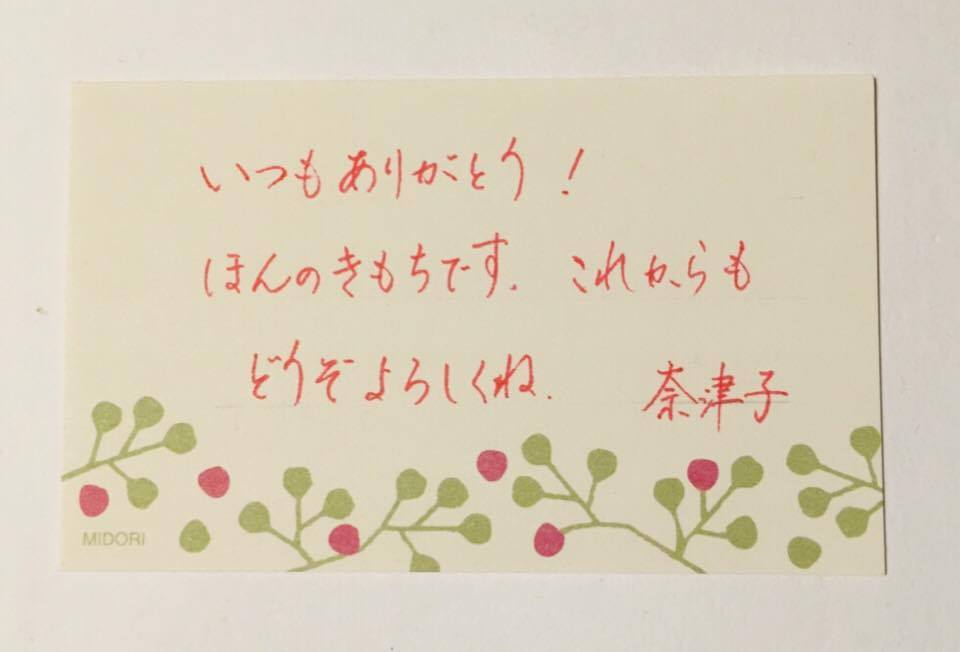 いつもありがとう！
ほんのきもちです. これからも
どうぞよろしくね. 奈津子
MIDORI